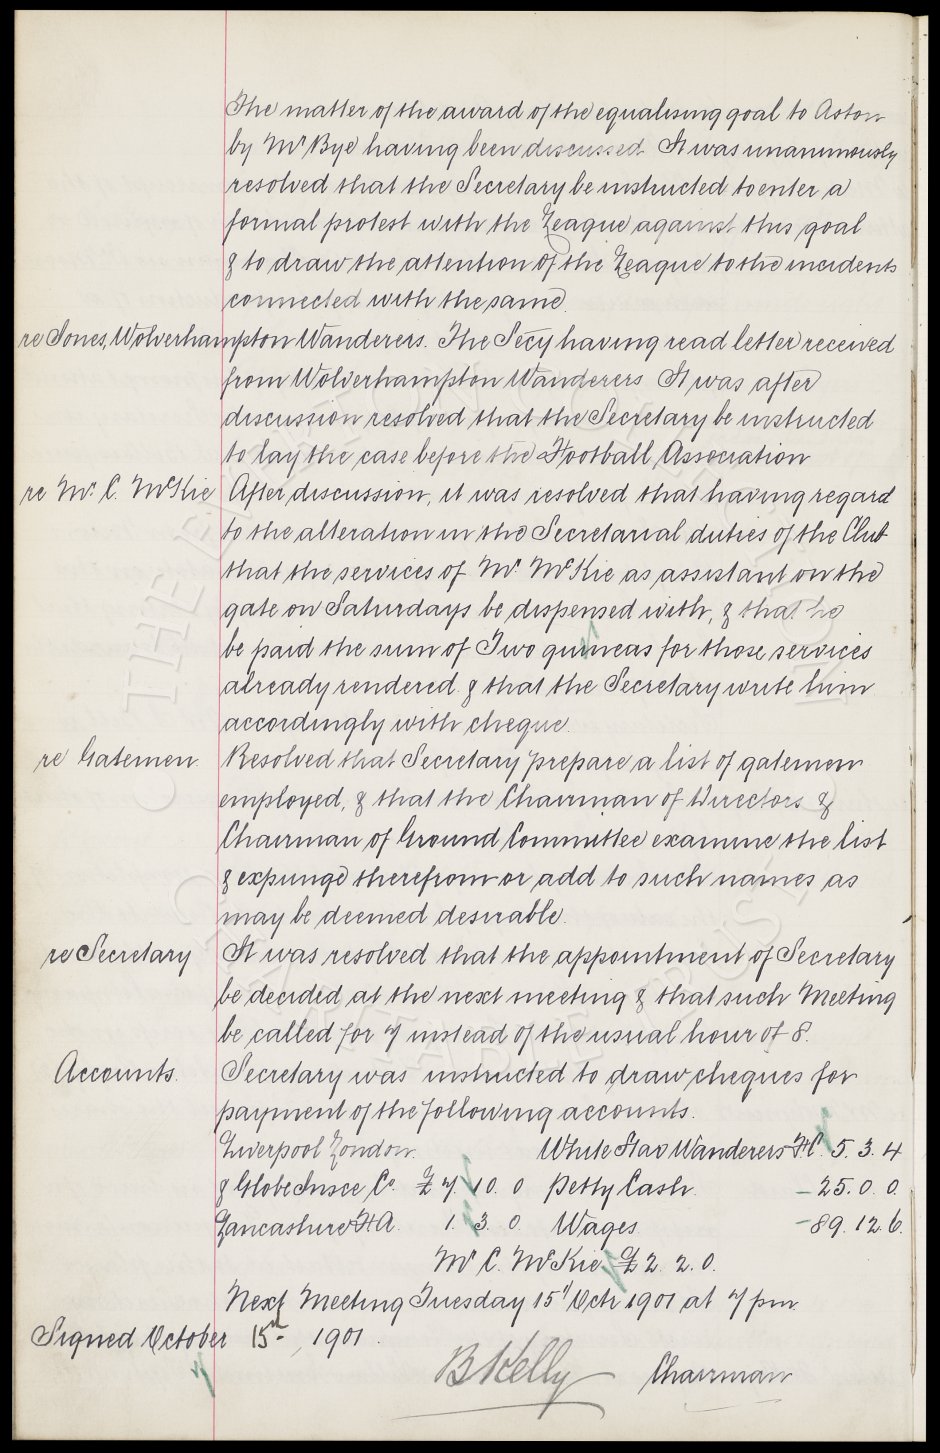 The matter of the award of the equalising goal to Aston
by Mr Bye having been discussed It was unanimously
resolved that the Secretary be instructed to enter a
formal protest with the League against this goal
& to draw the attention of the League to the incidents
connected with the same.
re Jones, Wolverhampton Wanderers. The Secy having read letter received
from Wolverhampton Wanderers It was after
discussion resolved that the Secretary be instructed
to lay the case before the Football Association
re Mr. C. McKie After discussion, it was resolved that having regard
to the alteration in the Secretarial duties of the Club
that the services of Mr. McKie as assistant on the
gate on Saturdays be dispensed with, & that he
be paid the sum of Two guineas for those services
already rendered & that the Secretary write him
accordingly with cheque.
re Gatemen. Resolved that Secretary prepare a list of gatemen
employed, & that the Chairman of Directors &
Chairman of Ground Committee examine the list
& expunge therefrom or add to such names as
may be deemed desirable.
re Secretary It was resolved that the appointment of Secretary
be decided at the next meeting & that such Meeting
be called for 7 instead of the usual hour of 8.
Accounts. Secretary was instructed to draw cheques for
payment of the following accounts.
Liverpool London White Star Wanderers F.C. 5. 3. 4
& Globe Insce Co. £7. 10. 0 Petty Cash. 25. 0. 0.
Lancashire F.A. 1. 3. 0. Wages 89. 12. 6.
Mr C. McKie £2. 2. 0.
Next Meeting Tuesday 15th Octr 1901 at 7 pm.
Signed October 15th, 1901.
B Kelly Chairman